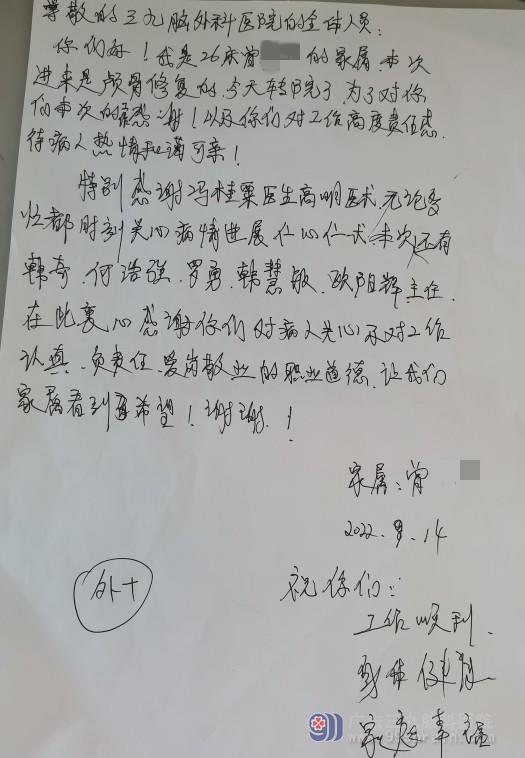 尊敬的三九脑外科医院的全体人员:
你们好!我是26床曾 的家属,本次
进来是颅骨修复的,今天转院了,为了对你
们本次的感谢!以及你们对工作高度责任感.
待病人热情和蔼可亲!
特别感谢冯桂棠医生高明医术,无论多
忙都时刻关心病情进展仁心仁术,本次还有
韩奇、何浩强、罗勇、韩慧敏、欧阳辉主任.
在此衷心感谢你们对病人关心及对工作
认真、负责任、爱岗敬业的职业道德,让我们
家属看到希望!谢谢!
家属:曾
2022.9.14
外十
祝你们:
工作顺利
身体健康
家庭幸福